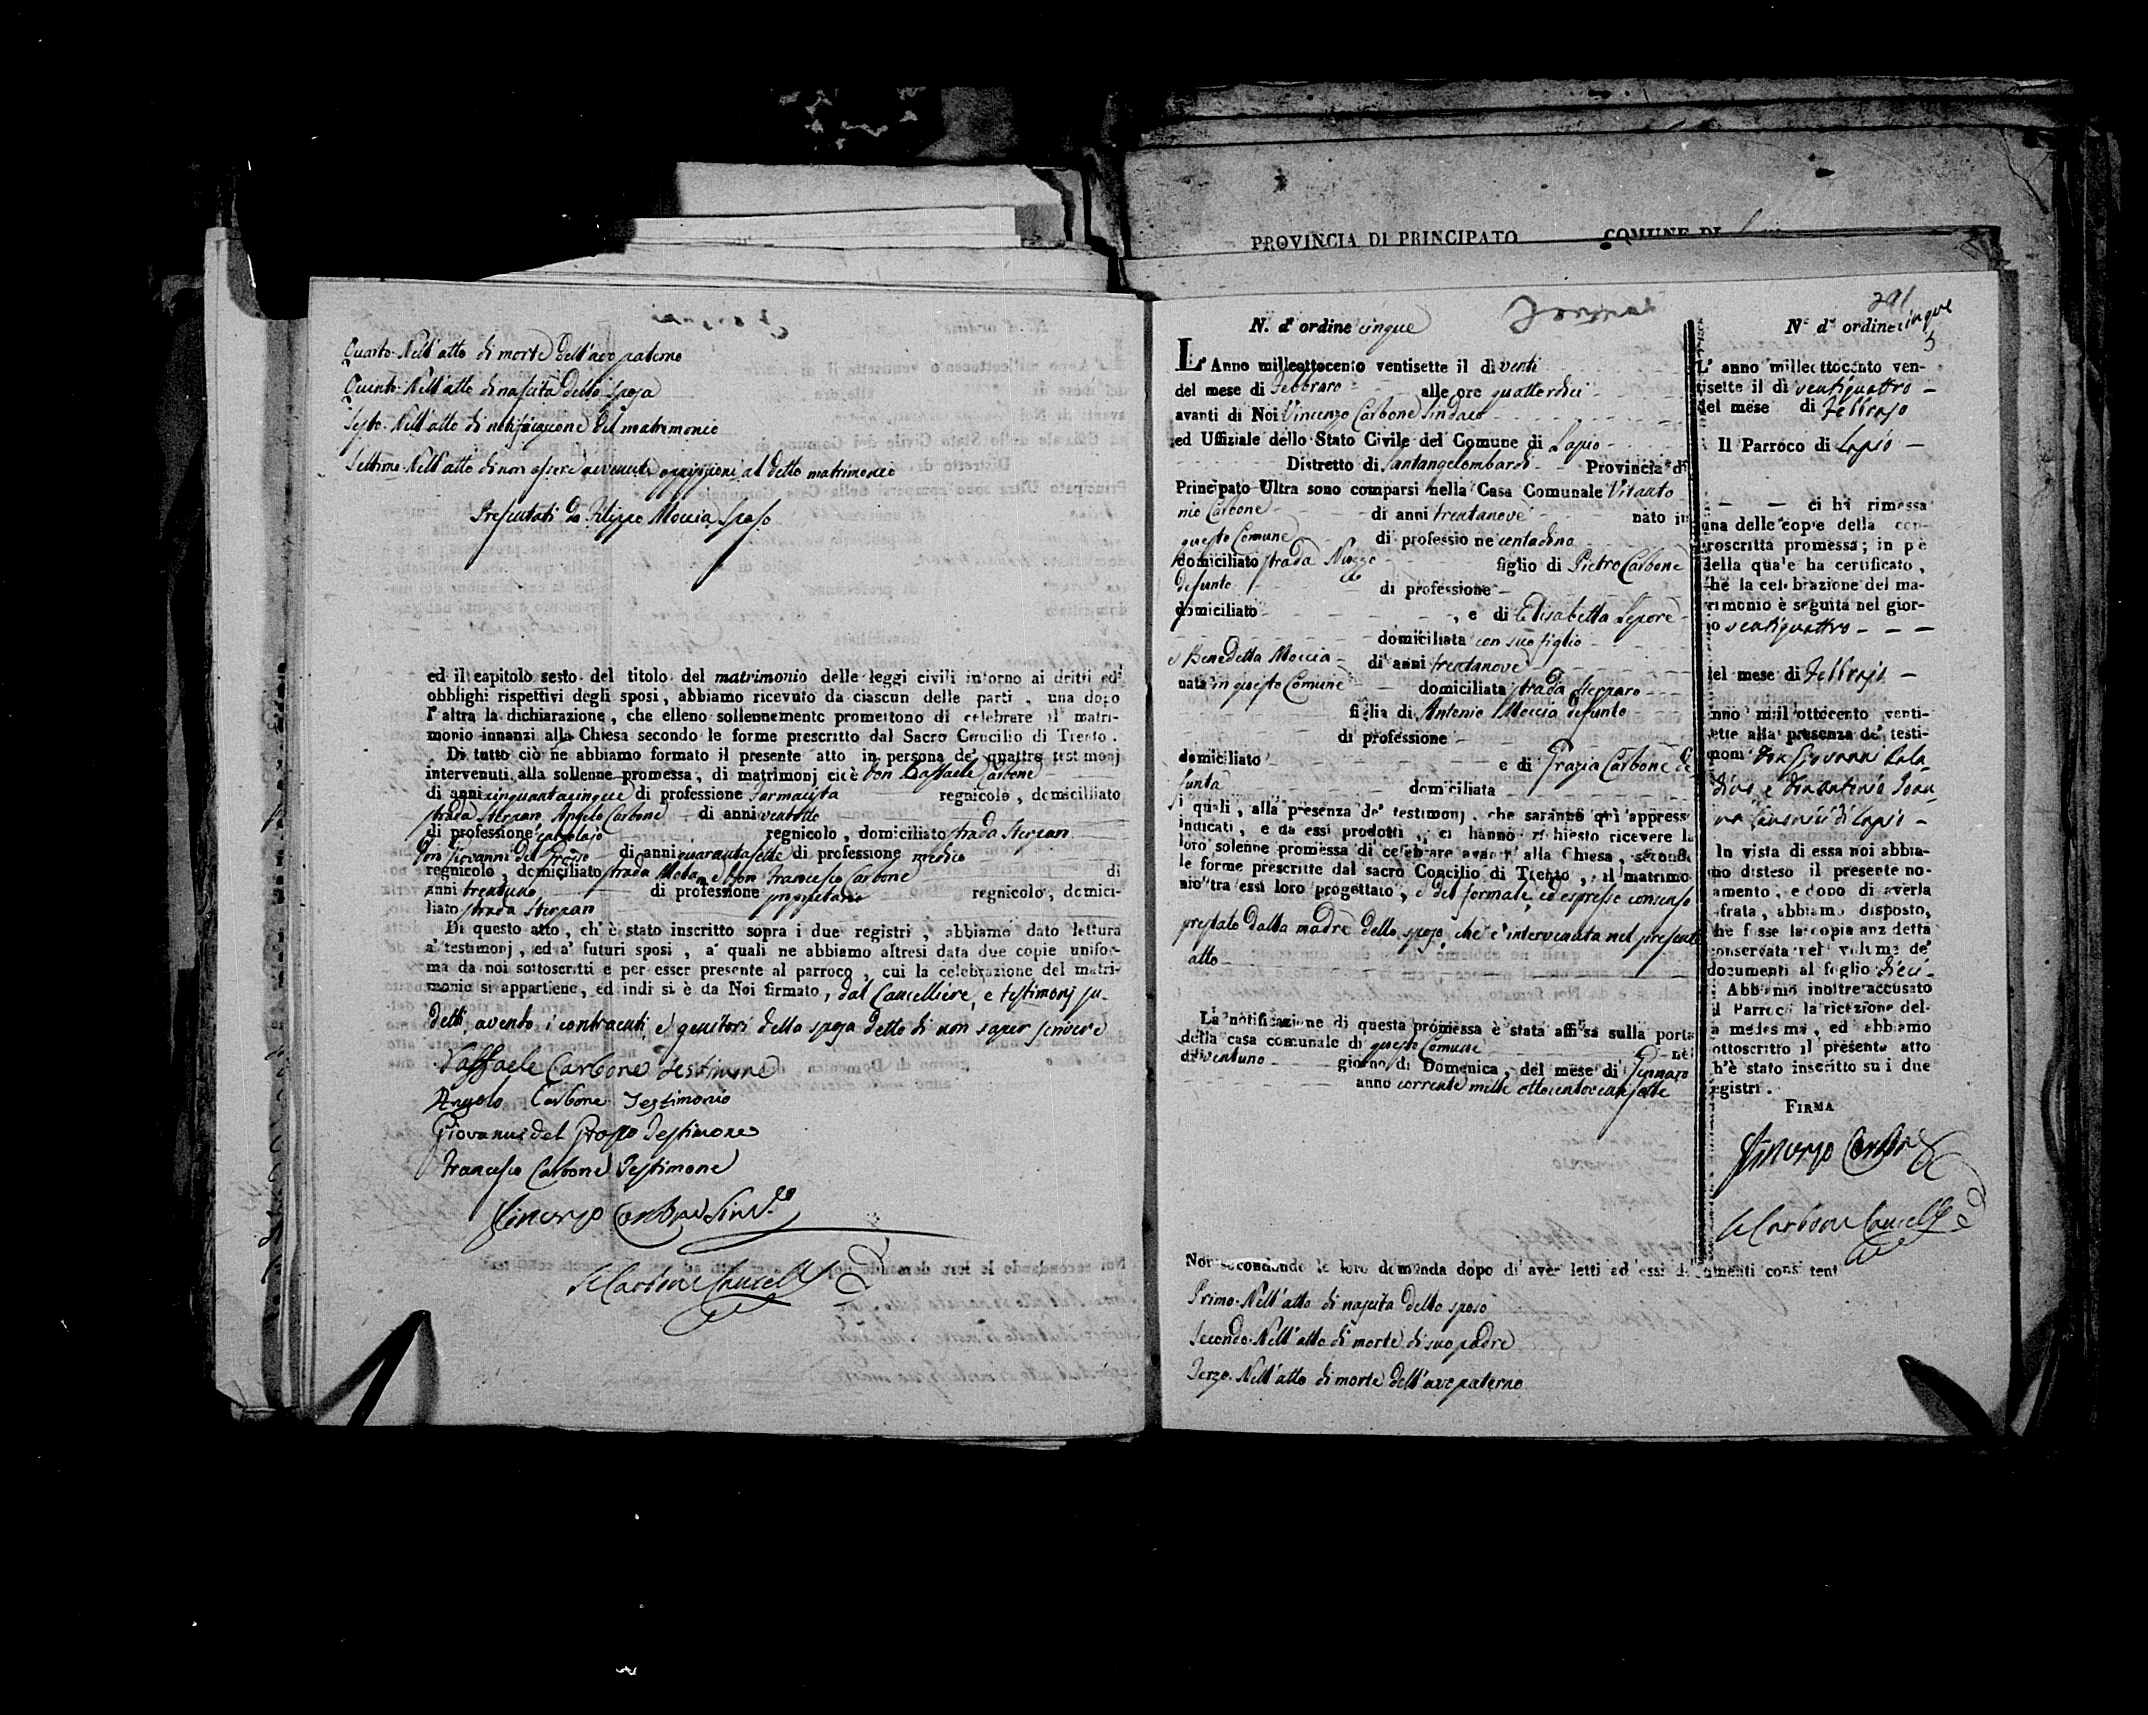 Quarto. Nell'atto di morte dell'avo paterno
Quinto. Nell'atto di nascita della sposa
Sesto. Nell'atto di notificazione del matrimonio
Settimo. Nell'atto di non essere avvenute opposizioni al detto matrimonio
Presentati da Filippo Moccia sposo
ed il capitolo sesto del titolo del matrimonio delle leggi civili intorno ai dritti ed
obblighi rispettivi degli sposi, abbiamo ricevuto da ciascun delle parti, una dopo
l'altra la dichiarazione, che elleno sollennemente promettono di celebrare il matri-
monio innanzi alla Chiesa secondo le forme prescritto dal Sacro Concilio di Trento.
Di tutto ciò ne abbiamo formato il presente atto in persona de' quattro testimonj
intervenuti alla sollenne promessa, di matrimonj cioè Don Raffaele Carbone
di anni cinquantacinque di professione Farmacista regnicolo, domiciliato
strada Sterpan Angelo Carbone di anni ventotto
di professione calzolajo regnicolo, domiciliato strada Sterpan
Don Giovanni del Grosso di anni quarantasette di professione medico
regnicolo, domiciliato strada e Don Francesco Carbone di
anni trentuno di professione proprietario regnicolo, domici-
liato strada Sterpan
Di questo atto, ch'è stato inscritto sopra i due registri, abbiamo dato lettura
a' testimonj, ed a' futuri sposi, a' quali ne abbiamo altresì data due copie unifor-
ma da noi sottoscritti e per esser presente al parroco, cui la celebrazione del matri-
monio si appartiene, ed indi si è da Noi firmato, dal Cancelliere, e testimonj su-
detti, avendo i contraenti, e genitori della sposa detto di non saper scrivere
Raffaele Carbone testimone
Angelo Carbone Testimonio
Giovanni del Grosso Testimone
Francesco Carbone Testimone
Vincenzo Carbone Sind.
Carbone Cancell
PROVINCIA DI PRINCIPATO COMUNE DI
291
N. d' ordine cinque
L' Anno milleottocento ventisette il dì venti
del mese di Febbraro alle ore quattordici
avanti di Noi Vincenzo Carbone Sindaco
ed Uffiziale dello Stato Civile del Comune di Lapio
Distretto di Santangelombardi Provincia di
Principato Ultra sono comparsi nella Casa Comunale Vitanto
nio Carbone di anni trentanove nato in
questo Comune di professione contadino
domiciliato strada figlio di Pietro Carbone
defunto di professione
domiciliato , e di Elisabetta Lepore
domiciliata con suo figlio
e Benedetta Moccia di anni trentanove
nata in questo Comune domiciliata strada Sterparo
figlia di Antonio Moccia defunto
di professione
domiciliato e di Grazia Carbone de
funta domiciliata
i quali, alla presenza de' testimonj, che saranno quì appresso
indicati, e da essi prodotti, ci hanno richiesto ricevere la
loro solenne promessa di celebrare avanti alla Chiesa, secondo
le forme prescritte dal sacro Concilio di Trento, il matrimo
nio tra essi loro progettato, e del formale, ed espresso consenso
prestato dalla madre dello sposo che è intervenuta nel presente
atto
La notificazione di questa promessa è stata affissa sulla porta
della casa comunale di questo Comune nel
dì ventuno giorno di Domenica, del mese di Gennaro
anno corrente mille ottocentoventisette
N. d' ordine cinque
5
L' anno milleottocento ven-
tisette il dì ventiquattro
del mese di Febbrajo
Il Parroco di Lapio
ci ha rimessa
una delle copie della con-
troscritta promessa; in piè
della quale ha certificato,
che la celebrazione del ma-
trimonio è seguita nel gior-
no ventiquattro
del mese di Febbrajo
anno mill'ottocento venti-
sette alla presenza de' testi-
moni Don Giovanni
di Lapio
In vista di essa noi abbia-
mo disteso il presente no-
tamento, e dopo di averla
cifrata, abbiamo disposto,
che fosse la copia anzidetta
conservata nel volume de'
documenti al foglio dieci
Abbiamo inoltre accusato
al Parroco la ricezione del-
la medesima, ed abbiamo
sottoscritto il presente atto
ch'è stato inscritto sui due
registri.
FIRMA
Vincenzo Carbone
Carbone Cancell
Noi secondando la loro domanda dopo di aver letti ad essi documenti consistenti
Primo. Nell'atto di nascita dello sposo
Secondo. Nell'atto di morte di suo padre
Terzo. Nell'atto di morte dell'avo paterno